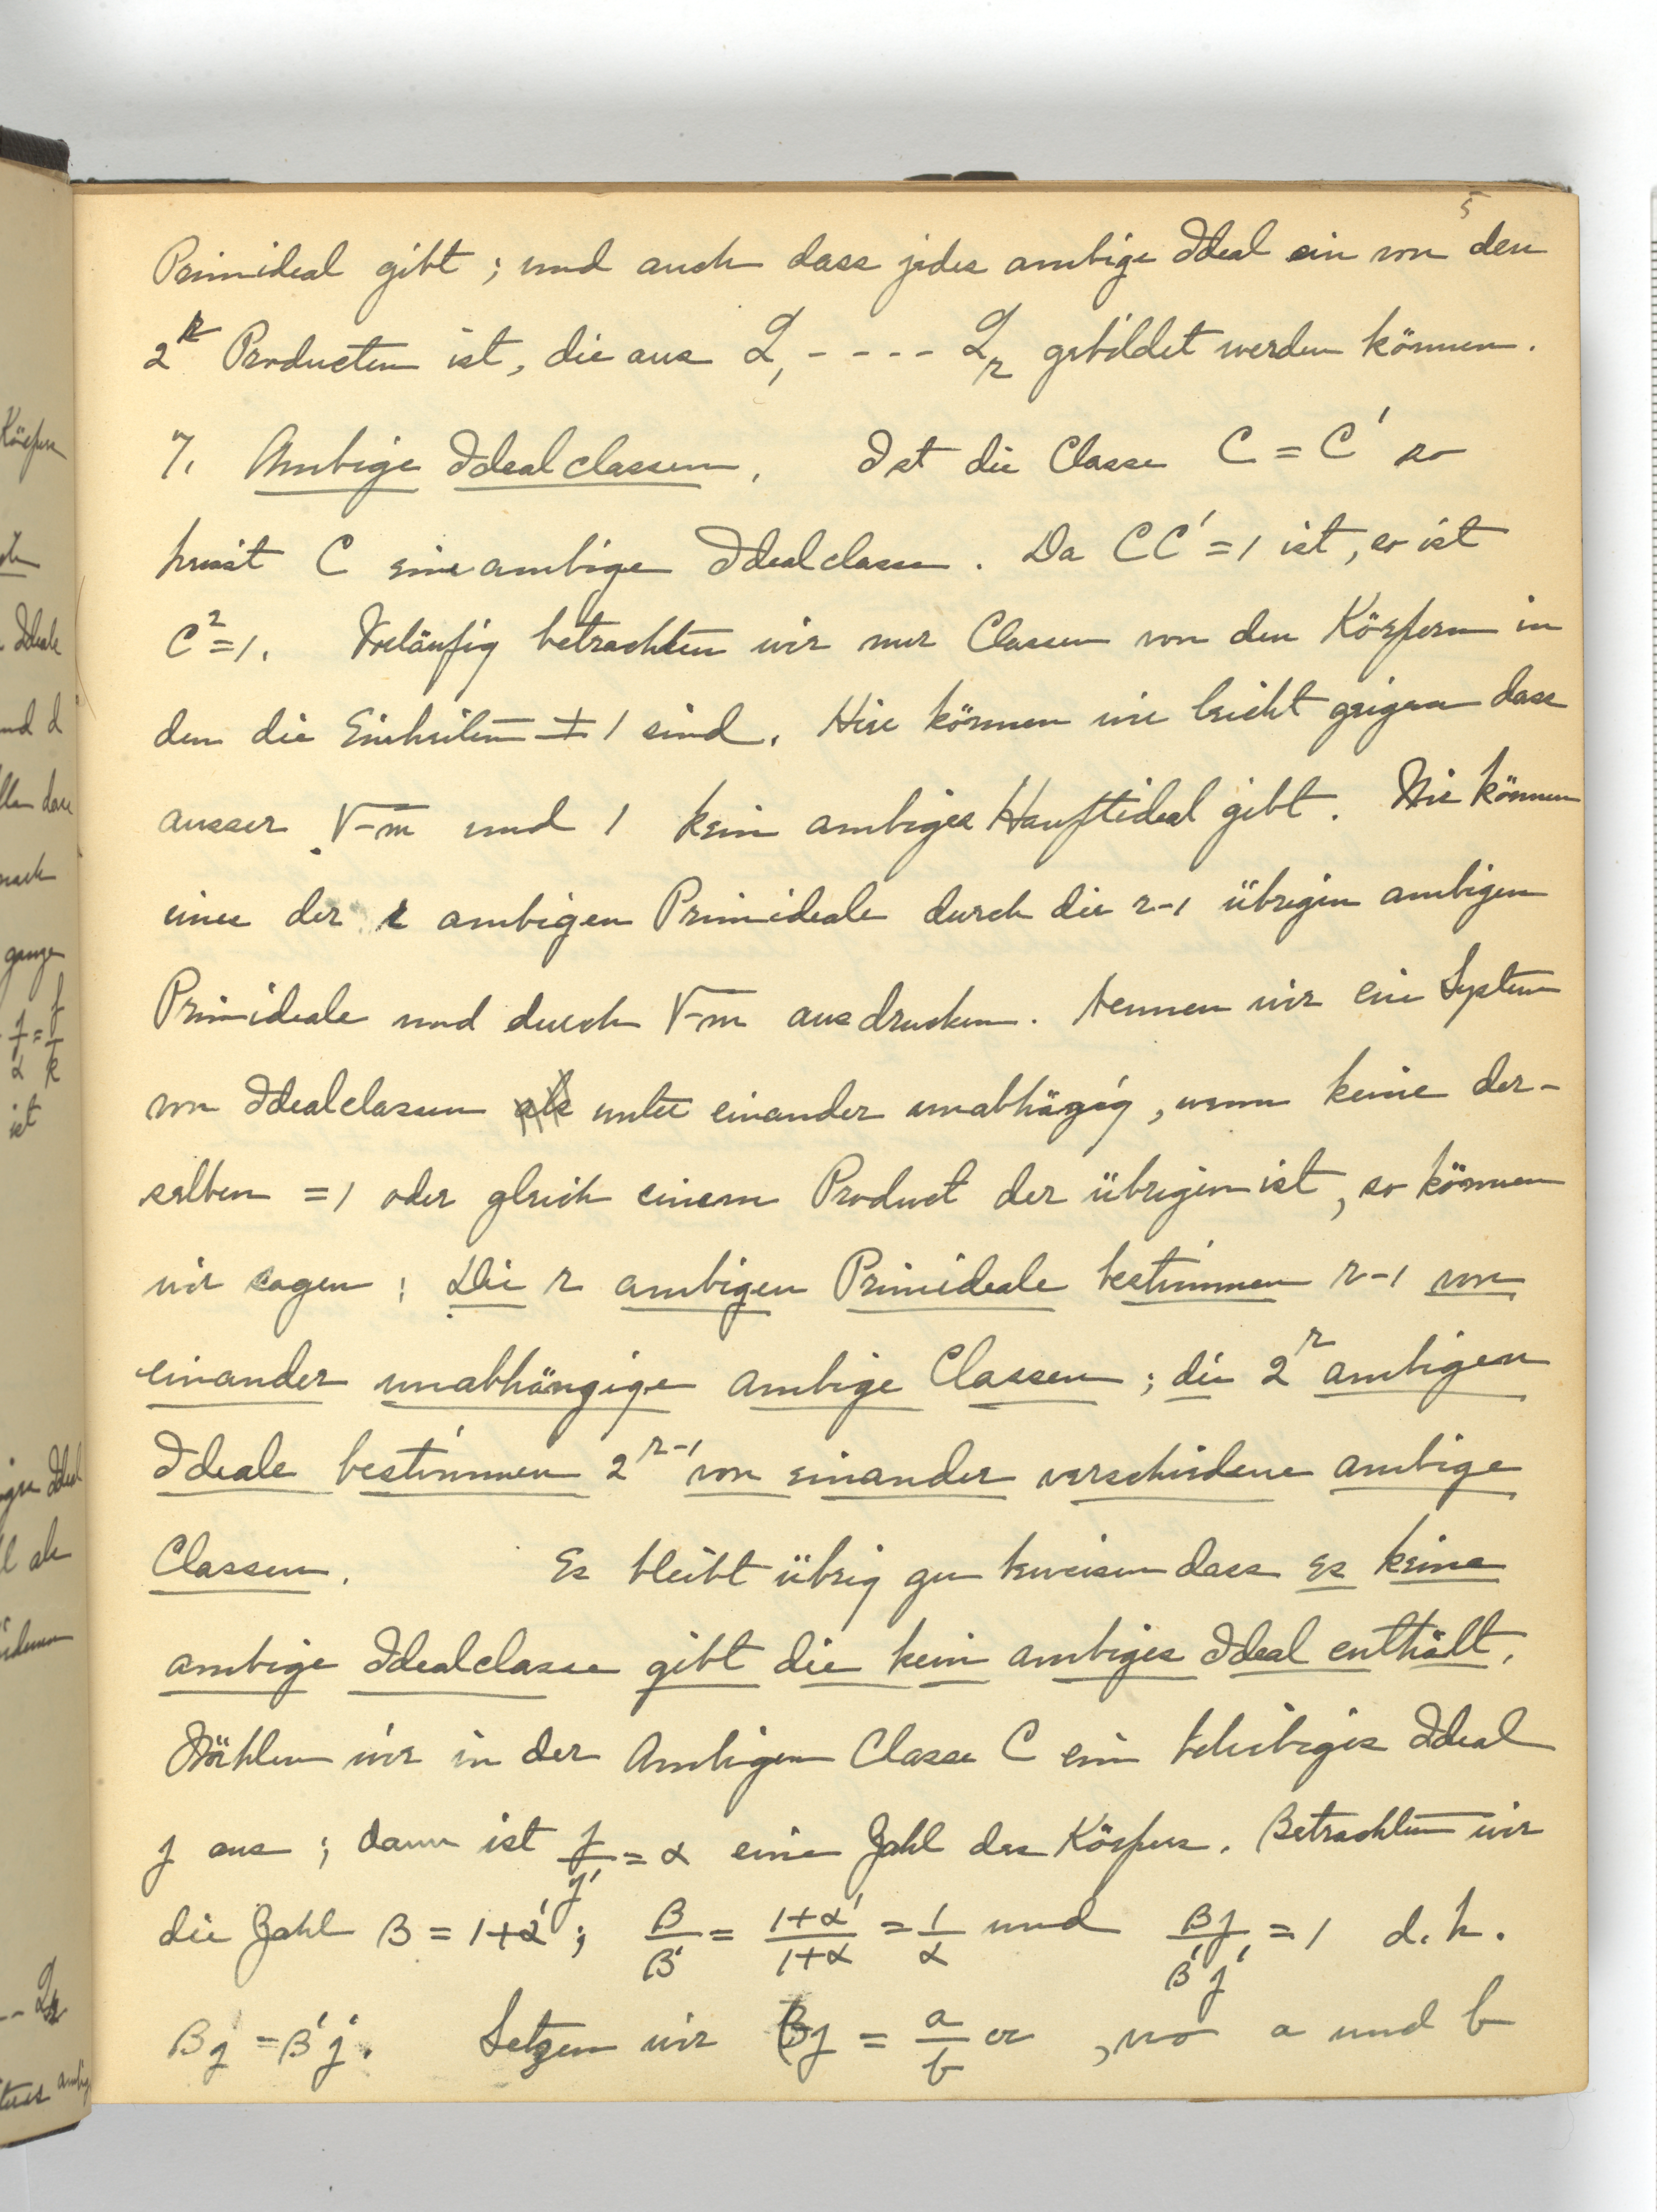 5
Primideal gibt; und auch dass jedes ambige Ideal ein von den
2^r Producten ist, die aus L_1 - - - - L_r gebildet werden können.
7. Ambige Idealclassen. Ist die Classe C = C' so
heisst C eine ambige Idealclasse. Da CC' = 1 ist, so ist
C^2 = 1. Vorläufig betrachten wir nur Classen von den Körpern in
den die Einheiten ± 1 sind. Hier können wir leicht zeigen dass
ausser √-m und 1 kein ambiges Hauptideal gibt. Wir können
eines der r ambigen Primideale durch die r-1 übrigen ambigen
Primideale und durch √-m ausdrucken. Nennen wir ein System
von Idealclassen als unter einander unabhägig, wenn keine der-
selben = 1 oder gleich einem Product der übrigen ist, so können
wir sagen: Die r ambigen Primideale bestimmen r-1 von
einander unabhängige ambige Classen; die 2^r ambigen
Ideale bestimmen 2^{r-1} von einander verschiedene ambige
Classen. Es bleibt übrig zu beweisen dass es keine
ambige Idealclasse gibt die kein ambiges Ideal enthält.
Wählen wir in der Ambigen Classe C ein beliebiges Ideal
j aus; dann ist j/j' = α eine Zahl des Körpers. Betrachten wir
die Zahl β = 1+α'; β/β' = (1+α')/(1+α) = 1/α und βj/β'j' = 1 d.h.
βj = β'j'. Setzen wir βj = a/b α, wo a und b